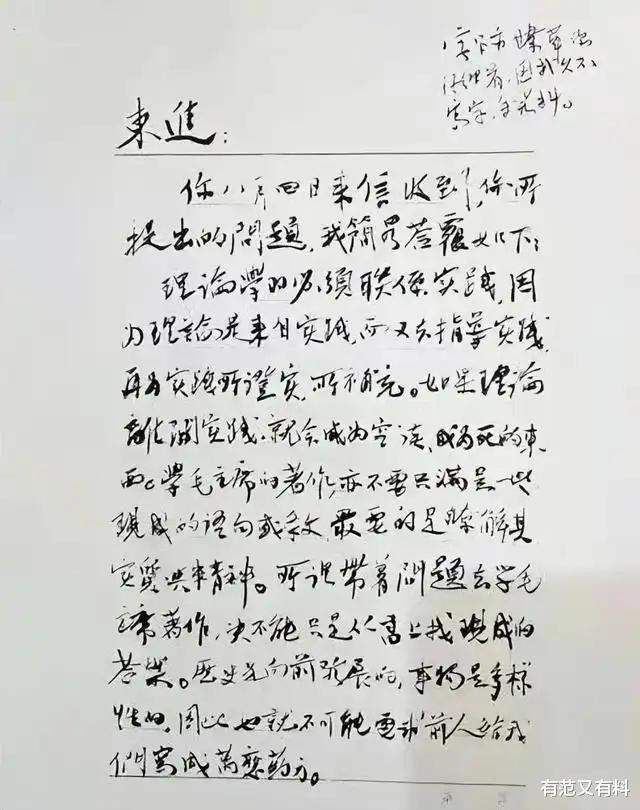 潦草
看,因我久不
寫字,
東進:
你八月四日来信收到,你所
提出的問題,我簡畧荅覆如下:
理論學習必須联係实践,因
为理論是来自实践,而又去指導实践,
再为实践所證实,所補充。如果理論
離開实践,就会成为空谈,成为死的東
西。學毛主席的著作,亦不要只滿足一些
現成的語句或条文,最要的是瞭解其
实質與精神。所谓帶着問題去学毛
主席著作,决不能只是从書上找現成的
荅案。歷史是向前發展的,事物是多樣
性的,因此也就不可能要求前人給我
們寫成萬應药方。
有范又有料